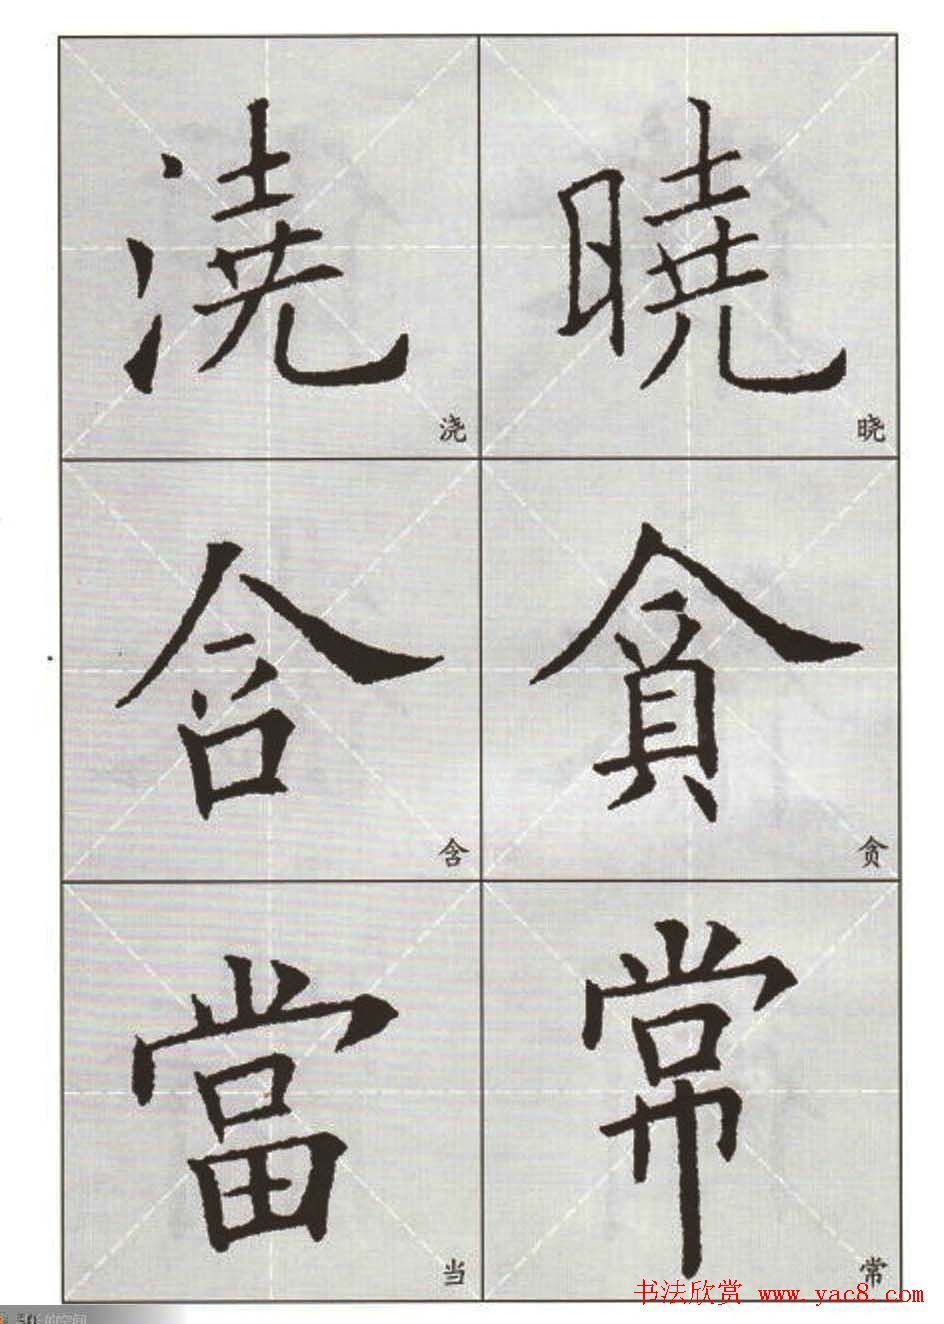 澆 曉
浇 晓
含 貪
含 贪
當 常
当 常
书法欣赏 www.yac8.com
50